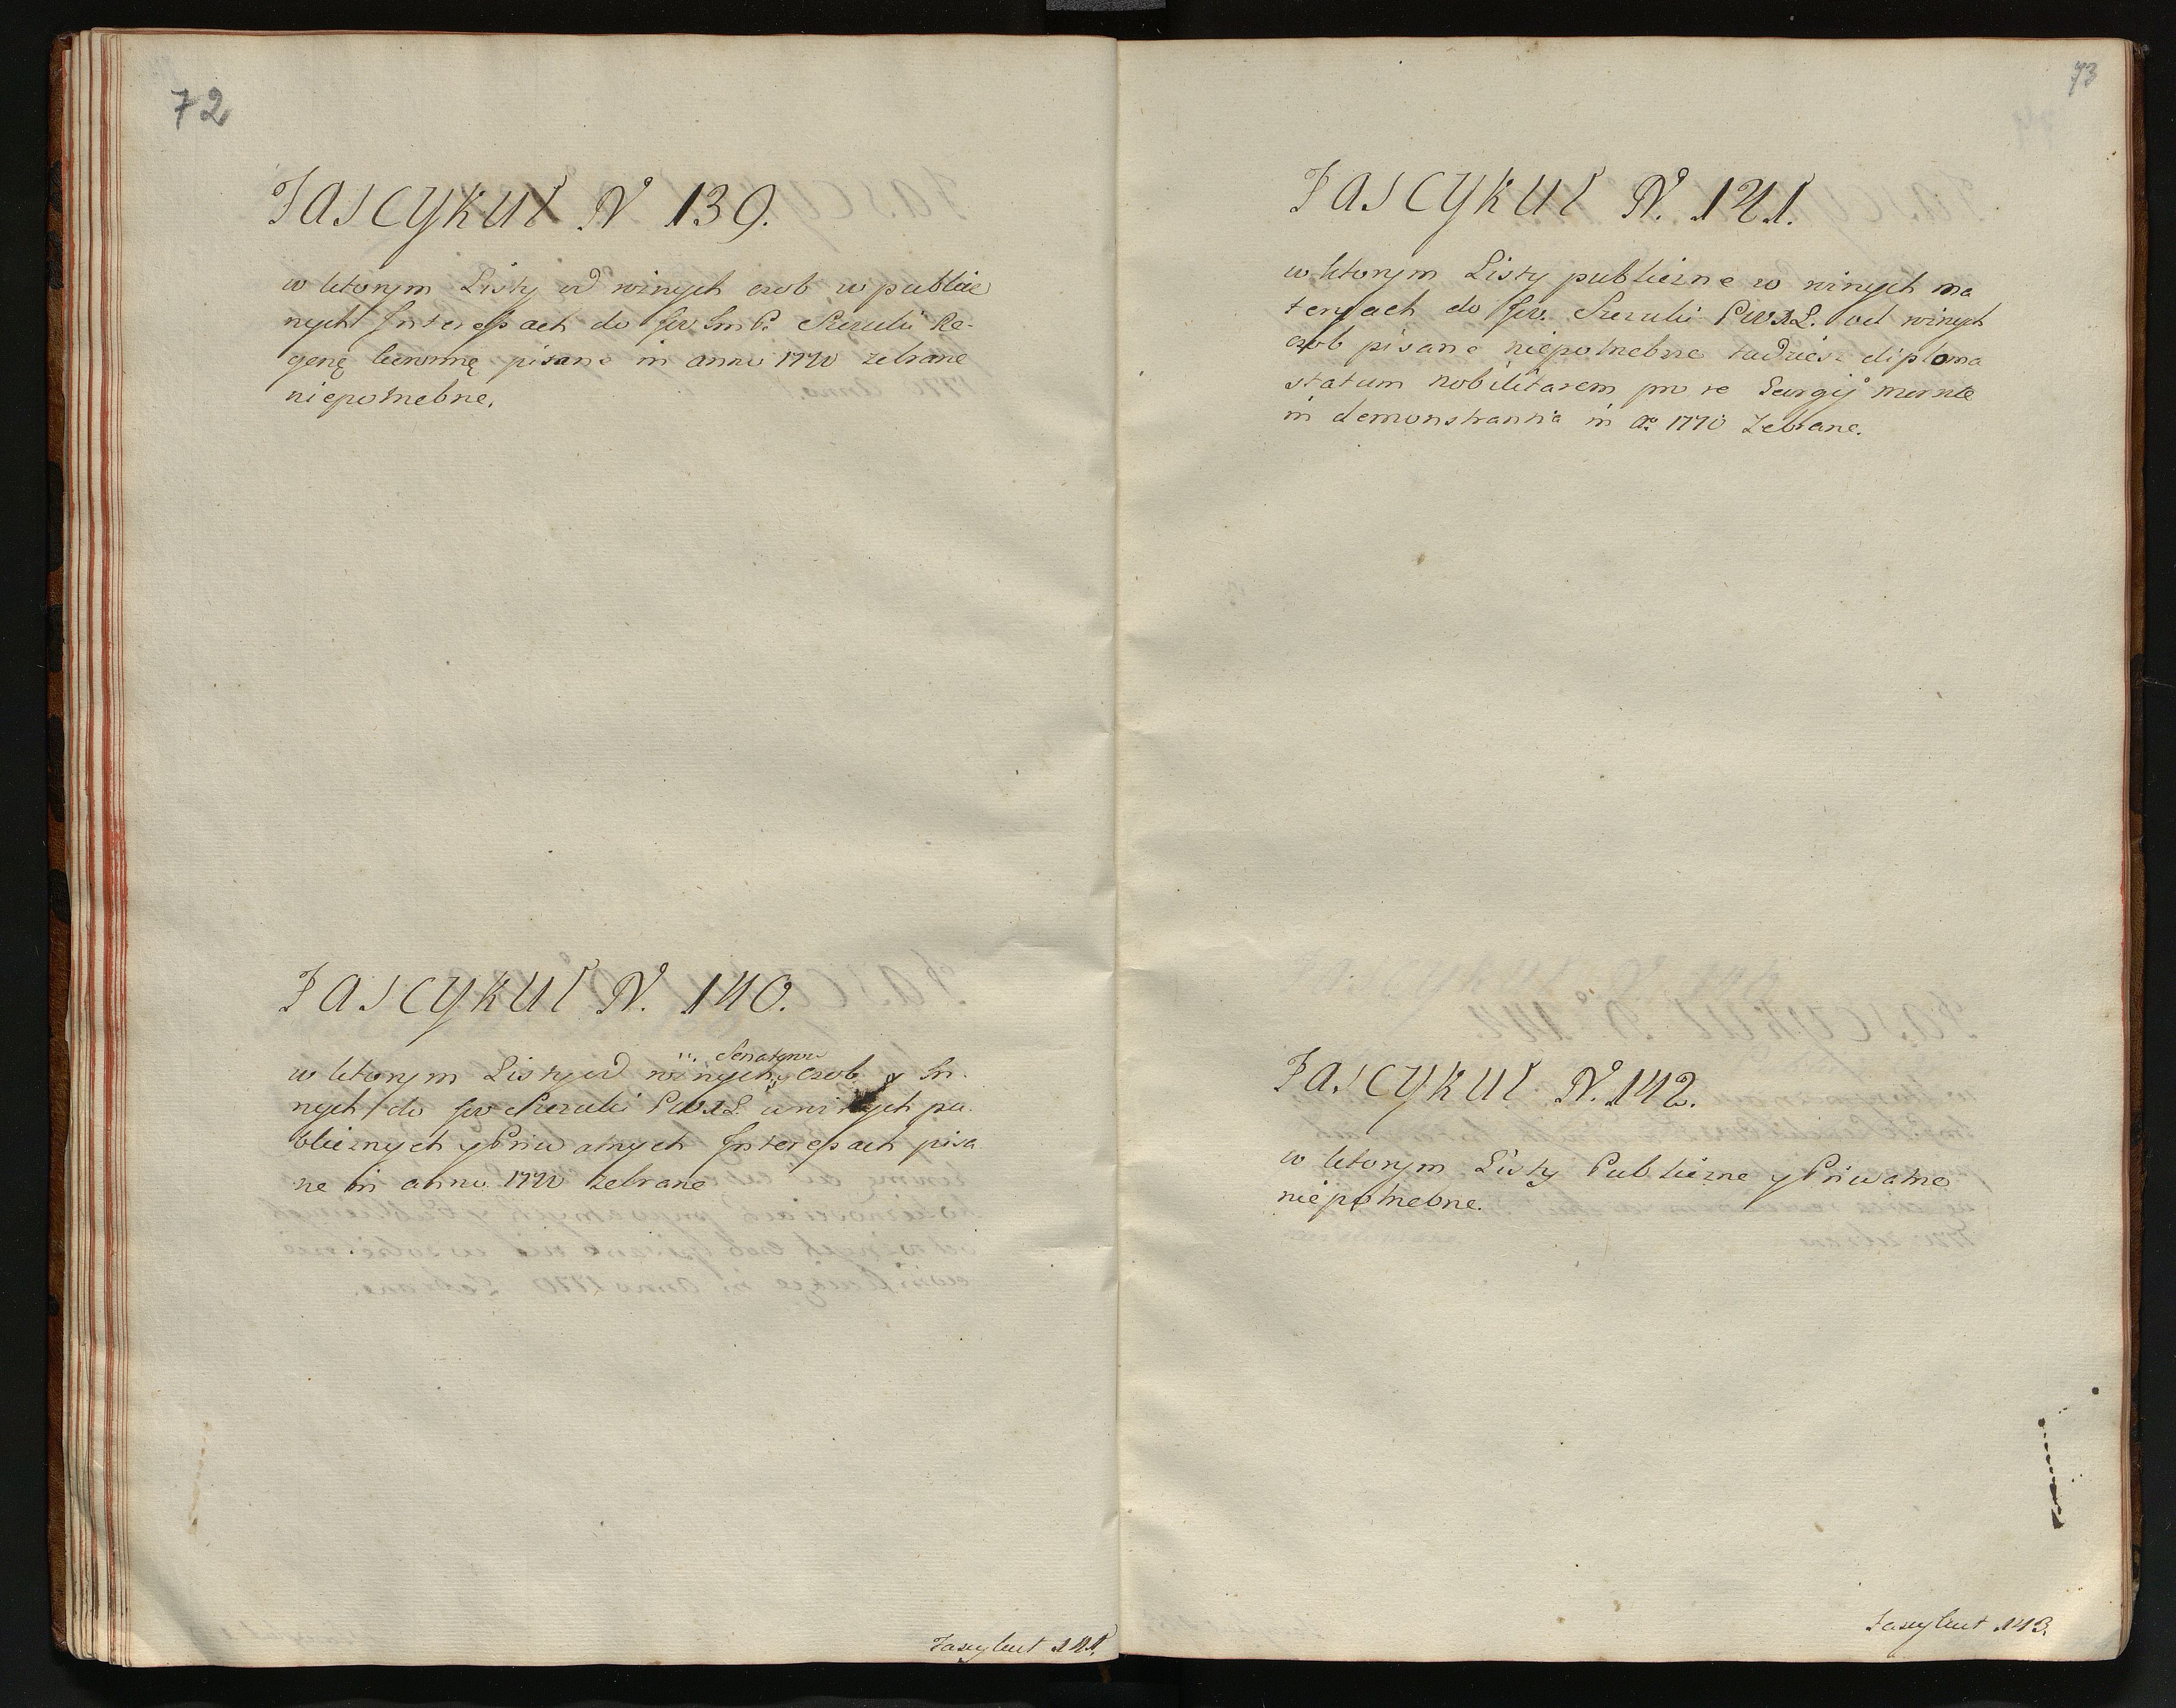 72
Fascykuł N 139.
w ktorym Listy od roznych osob w publicz
nych Interessach do Jw Im P. Szczuki Re-
gentę koronnę pisane in anno 1770 zebrane
niepotrzebne.
Fascykuł N. 140.
Senatorow
w ktorym Listy od roznych osob y In-
nych do Jw Szczuki PWXL w roznych pu-
blicznych y Priwatnych Interessach pisa
ne in anno 1770 zebrane
Fascykuł 141.
73
Fascykuł N. 141.
w ktorym Listy publiczne w roznych ma
teryach do Jw. Szczuki PWXL. od roznych
osob pisane niepotrzebne tudziesz diploma
statum nobilitarem pro re
in demonstrantia in Ao 1770 Zebrane.
Fascykuł N. 142.
w ktorym Listy Publiczne y Priwatne
niepotrzebne.
Fascykuł 143.